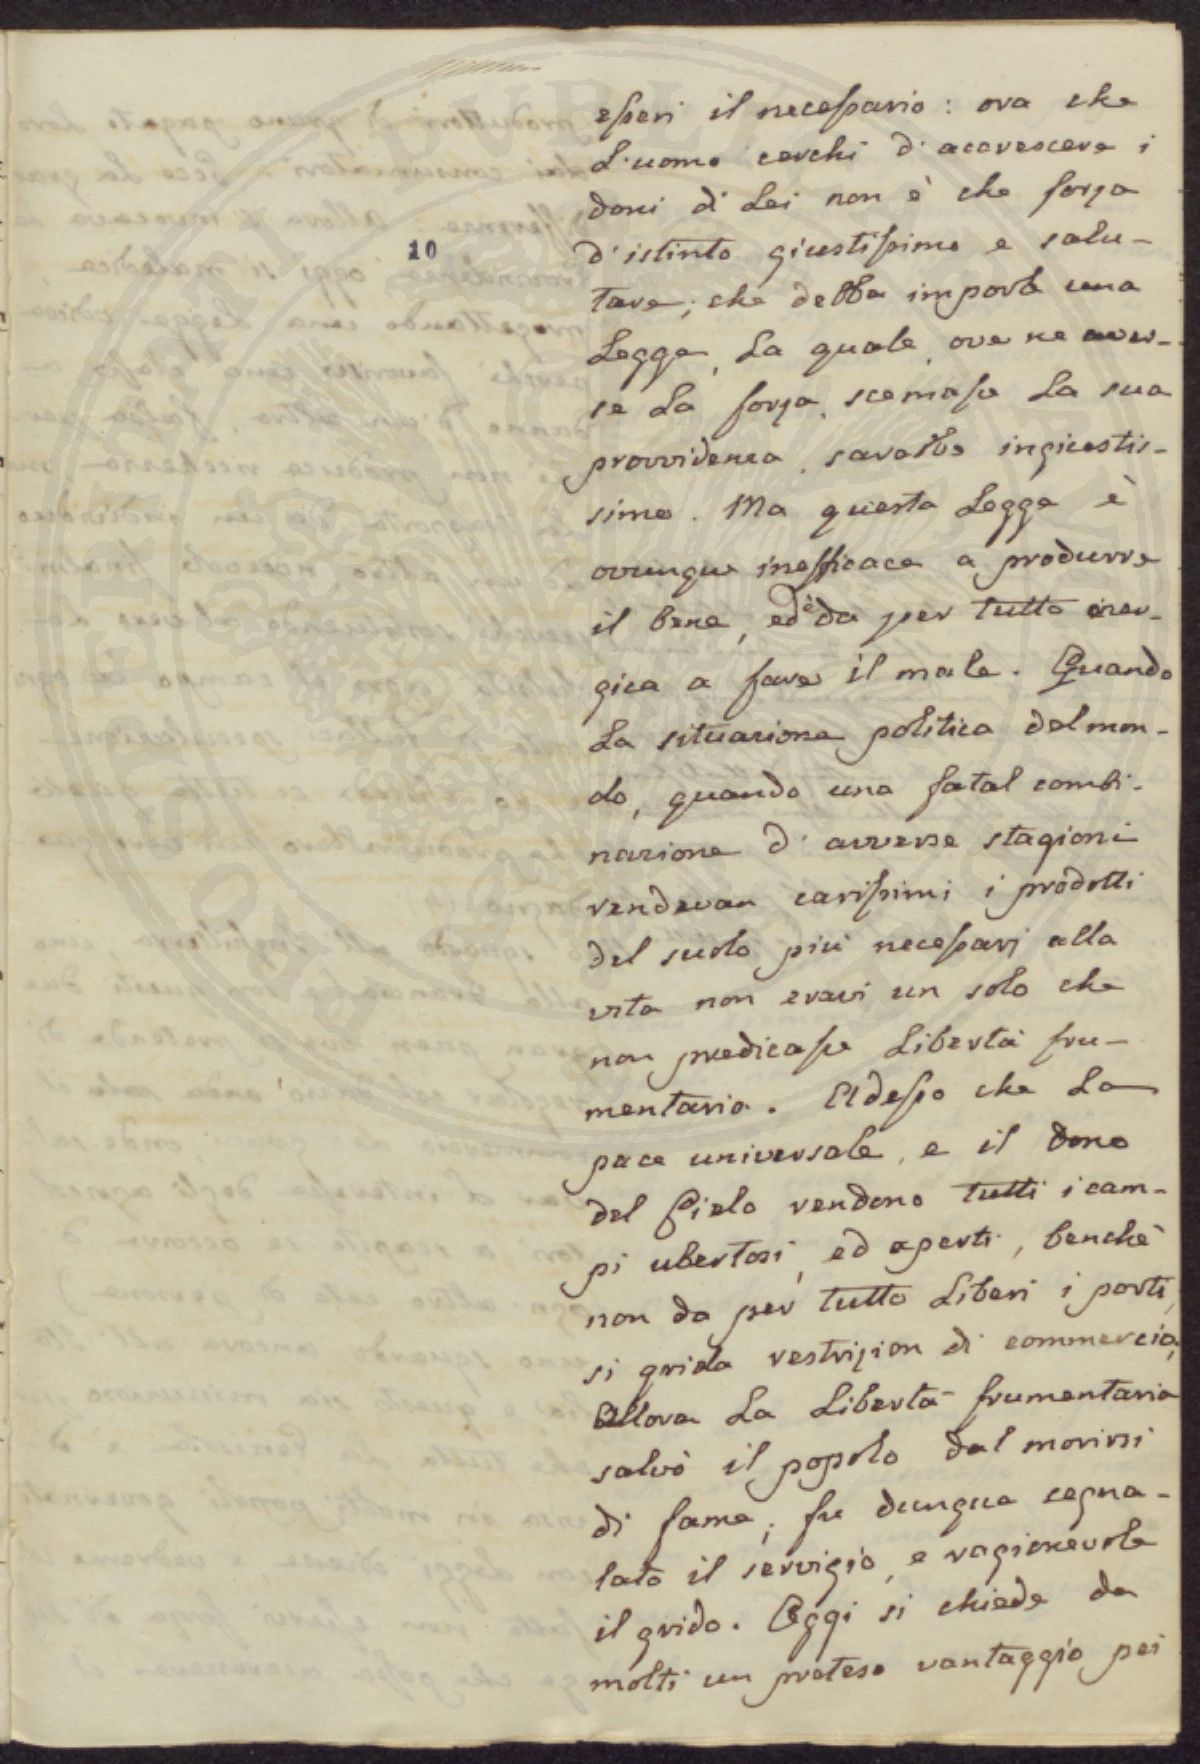 10
esseri il necessario: ora che
l'uomo cerchi d'accrescere i
doni di Lei non è che forza
d'istinto giustissimo e salu-
tare; che debba imporle una
Legge, la quale, ove ne aves-
se la forza, scemasse la sua
provvidenza, sarebbe ingiustis-
simo. Ma questa Legge è
ovunque inefficace a produrre
il bene, ed è da per tutto ener-
gica a fare il male. Quando
la situazione politica del mon-
do, quando una fatal combi-
nazione d'avverse stagioni
rendevan carissimi i prodotti
del suolo più necessarj alla
vita non eravi un solo che
non predicasse libertà fru-
mentaria. Adesso che la
pace universale, e il dono
del Cielo rendono tutti i cam-
pi ubertosi, ed aperti, benchè
non da per tutto liberi i porti,
si grida restrizion di commercio,
Allora la libertà frumentaria
salvò il popolo dal morirsi
di fame; fu dunque segna-
lato il servigio, e ragionevole
il grido. Oggi si chiede da
molti un preteso vantaggio pei